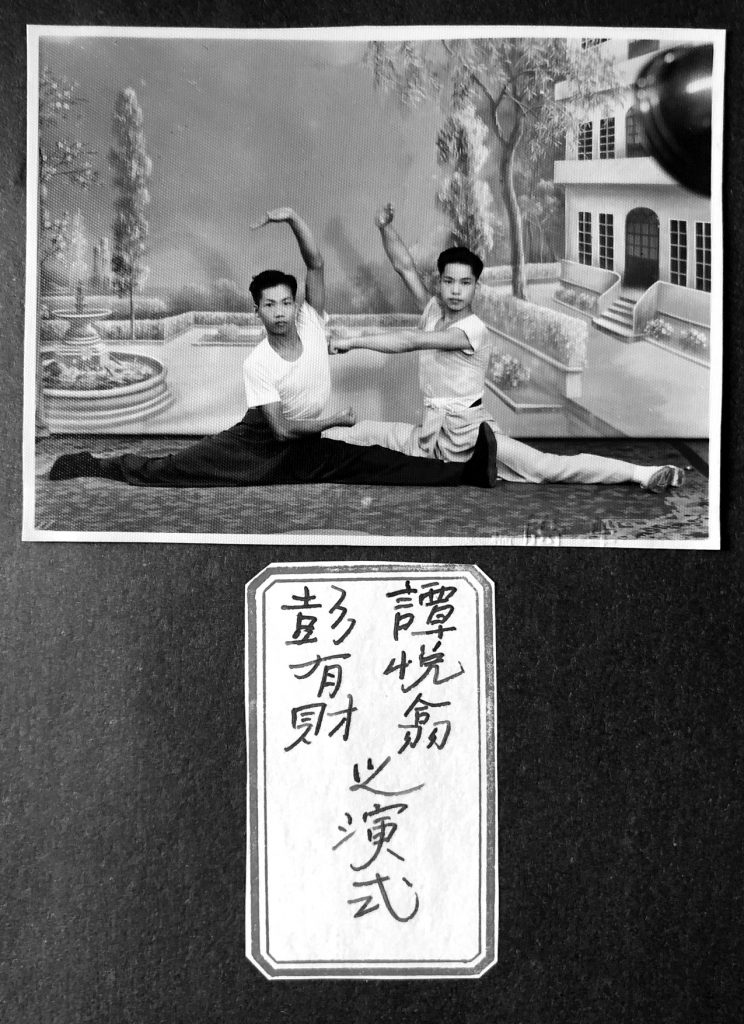 譚悅翕
彭有財
之演式